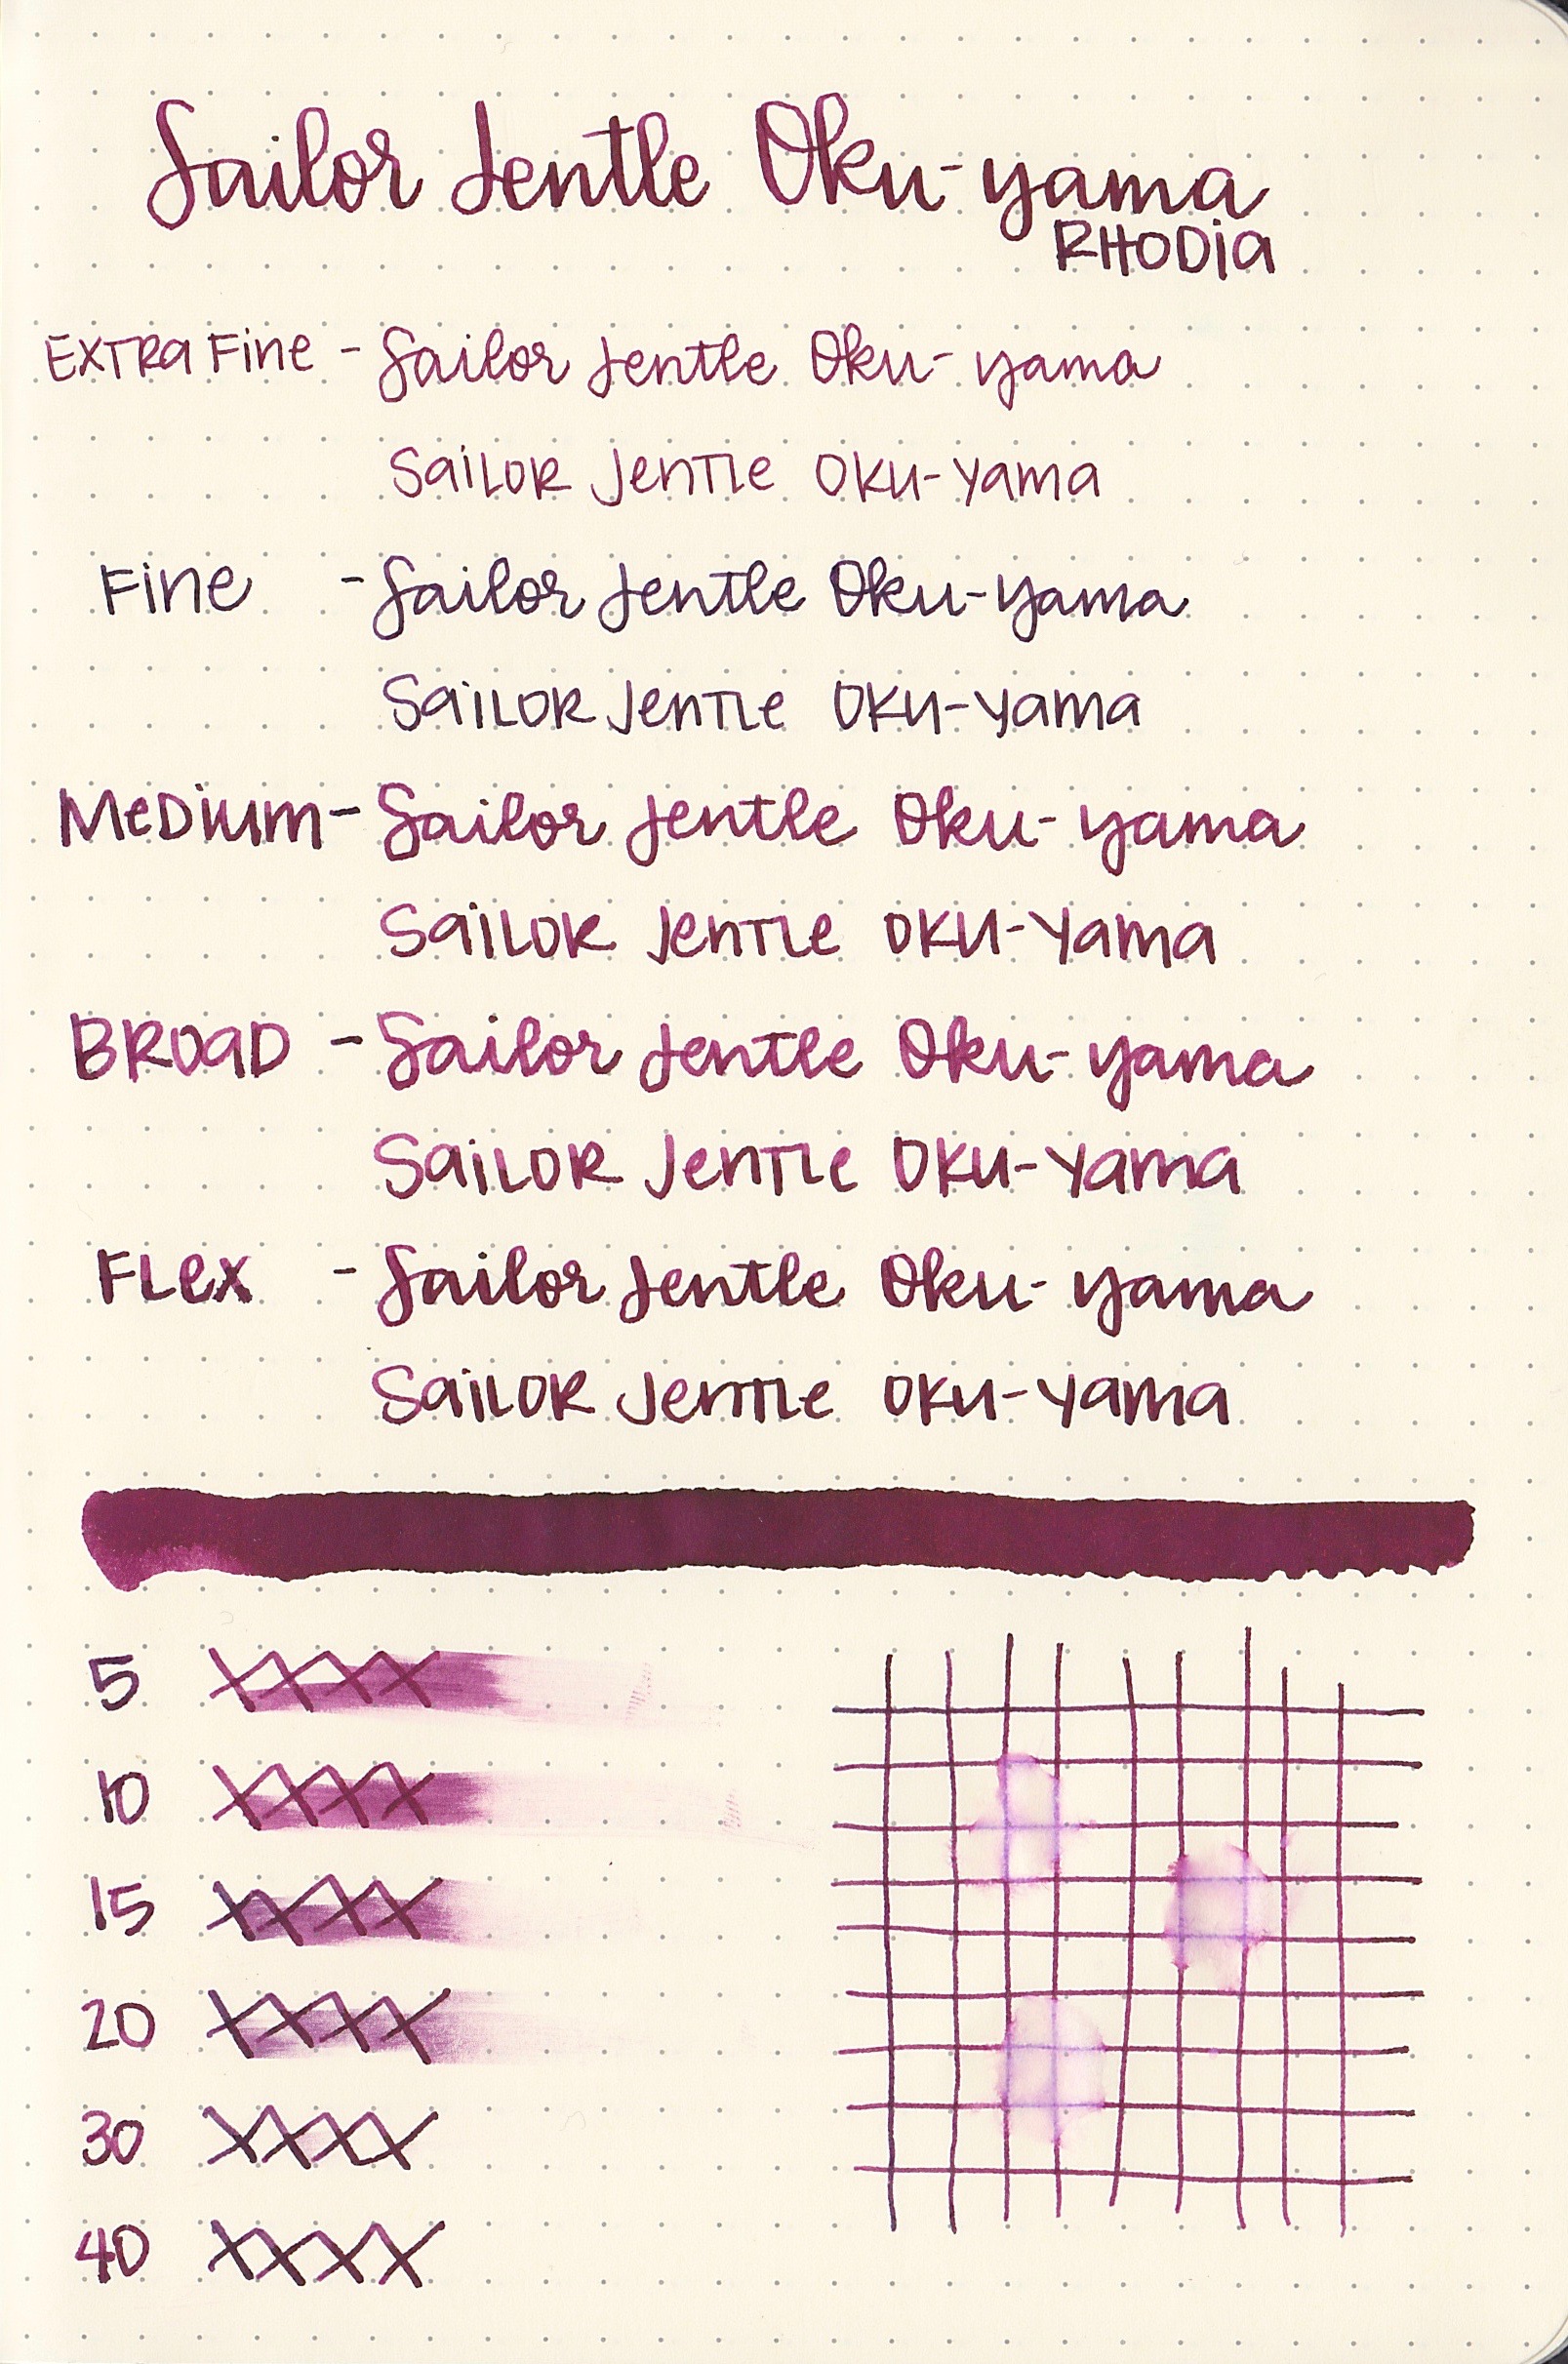 Sailor Jentle Oku-yama
RHODIA
EXTRA FINE - Sailor Jentle Oku-yama
SAILOR JENTLE OKU-YAMA
FINE - Sailor Jentle Oku-yama
SAILOR JENTLE OKU-YAMA
MEDIUM - Sailor Jentle Oku-yama
SAILOR JENTLE OKU-YAMA
BROAD - Sailor Jentle Oku-yama
SAILOR JENTLE OKU-YAMA
FLEX - Sailor Jentle Oku-yama
SAILOR JENTLE OKU-YAMA
5 XXXX
10 XXXX
15 XXXX
20 XXXX
30 XXXX
40 XXXX